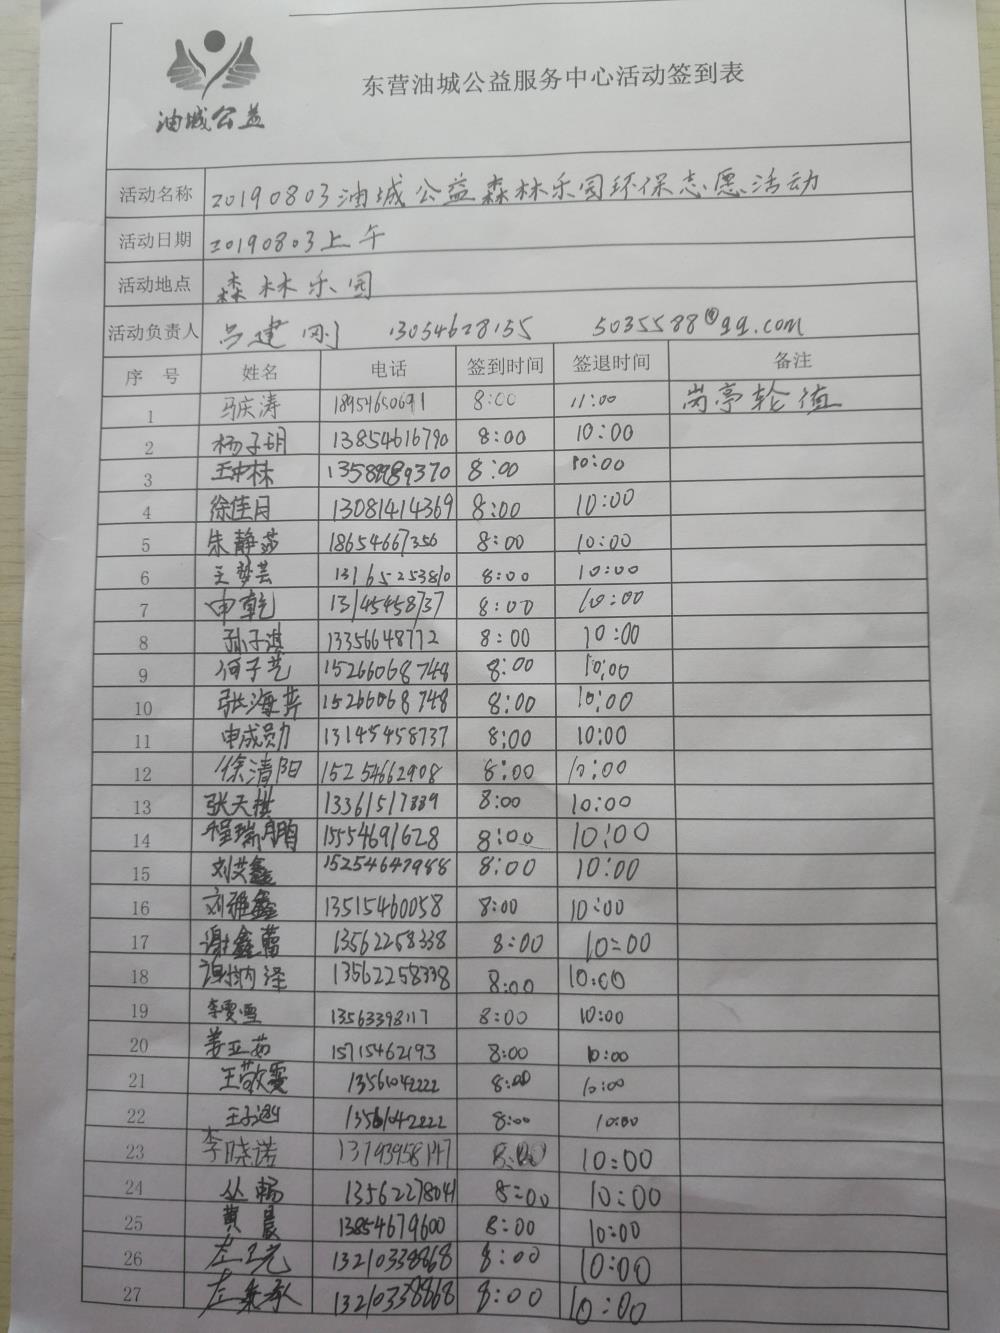 油城公益
东营油城公益服务中心活动签到表
活动名称 20190803油城公益森林乐园环保志愿活动
活动日期 20190803上午
活动地点 森林乐园
活动负责人 吕建刚 13054628155 5035588@qq.com
序号 姓名 电话 签到时间 签退时间 备注
1 马庆涛 18954650691 8:00 11:00 岗亭轮值
2 杨子玥 13854616790 8:00 10:00
3 王中林 8:00 10:00
4 徐佳月 13081414369 8:00 10:00
5 朱静莎 18654667356 8:00 10:00
6 王梦芸 13165253810 8:00 10:00
7 申乾 13145458737 8:00 10:00
8 孙子淇 13356648772 8:00 10:00
9 何子艺 15266068748 8:00 10:00
10 张海芹 15266068748 8:00 10:00
11 申成员力 13145458737 8:00 10:00
12 徐清阳 15254662908 8:00 10:00
13 张天 8:00 10:00
14 程瑞鹏 15554691628 8:00 10:00
15 刘艾鑫 8:00 10:00
16 刘雅鑫 13515460058 8:00 10:00
17 谢鑫蕾 13562258338 8:00 10:00
18 谢纳泽 13562258338 8:00 10:00
19 李雯雪 13563398117 8:00 10:00
20 姜亚茹 15715462193 8:00 10:00
21 王敬雯 13561042222 8:00 10:00
22 王子 13561042222 8:00 10:00
23 李晓诺 13793958147 8:00 10:00
24 丛畅 13562278041 8:00 10:00
25 黄晨 13854679600 8:00 10:00
26 左 13210338868 8:00 10:00
27 左秉承 13210338868 8:00 10:00